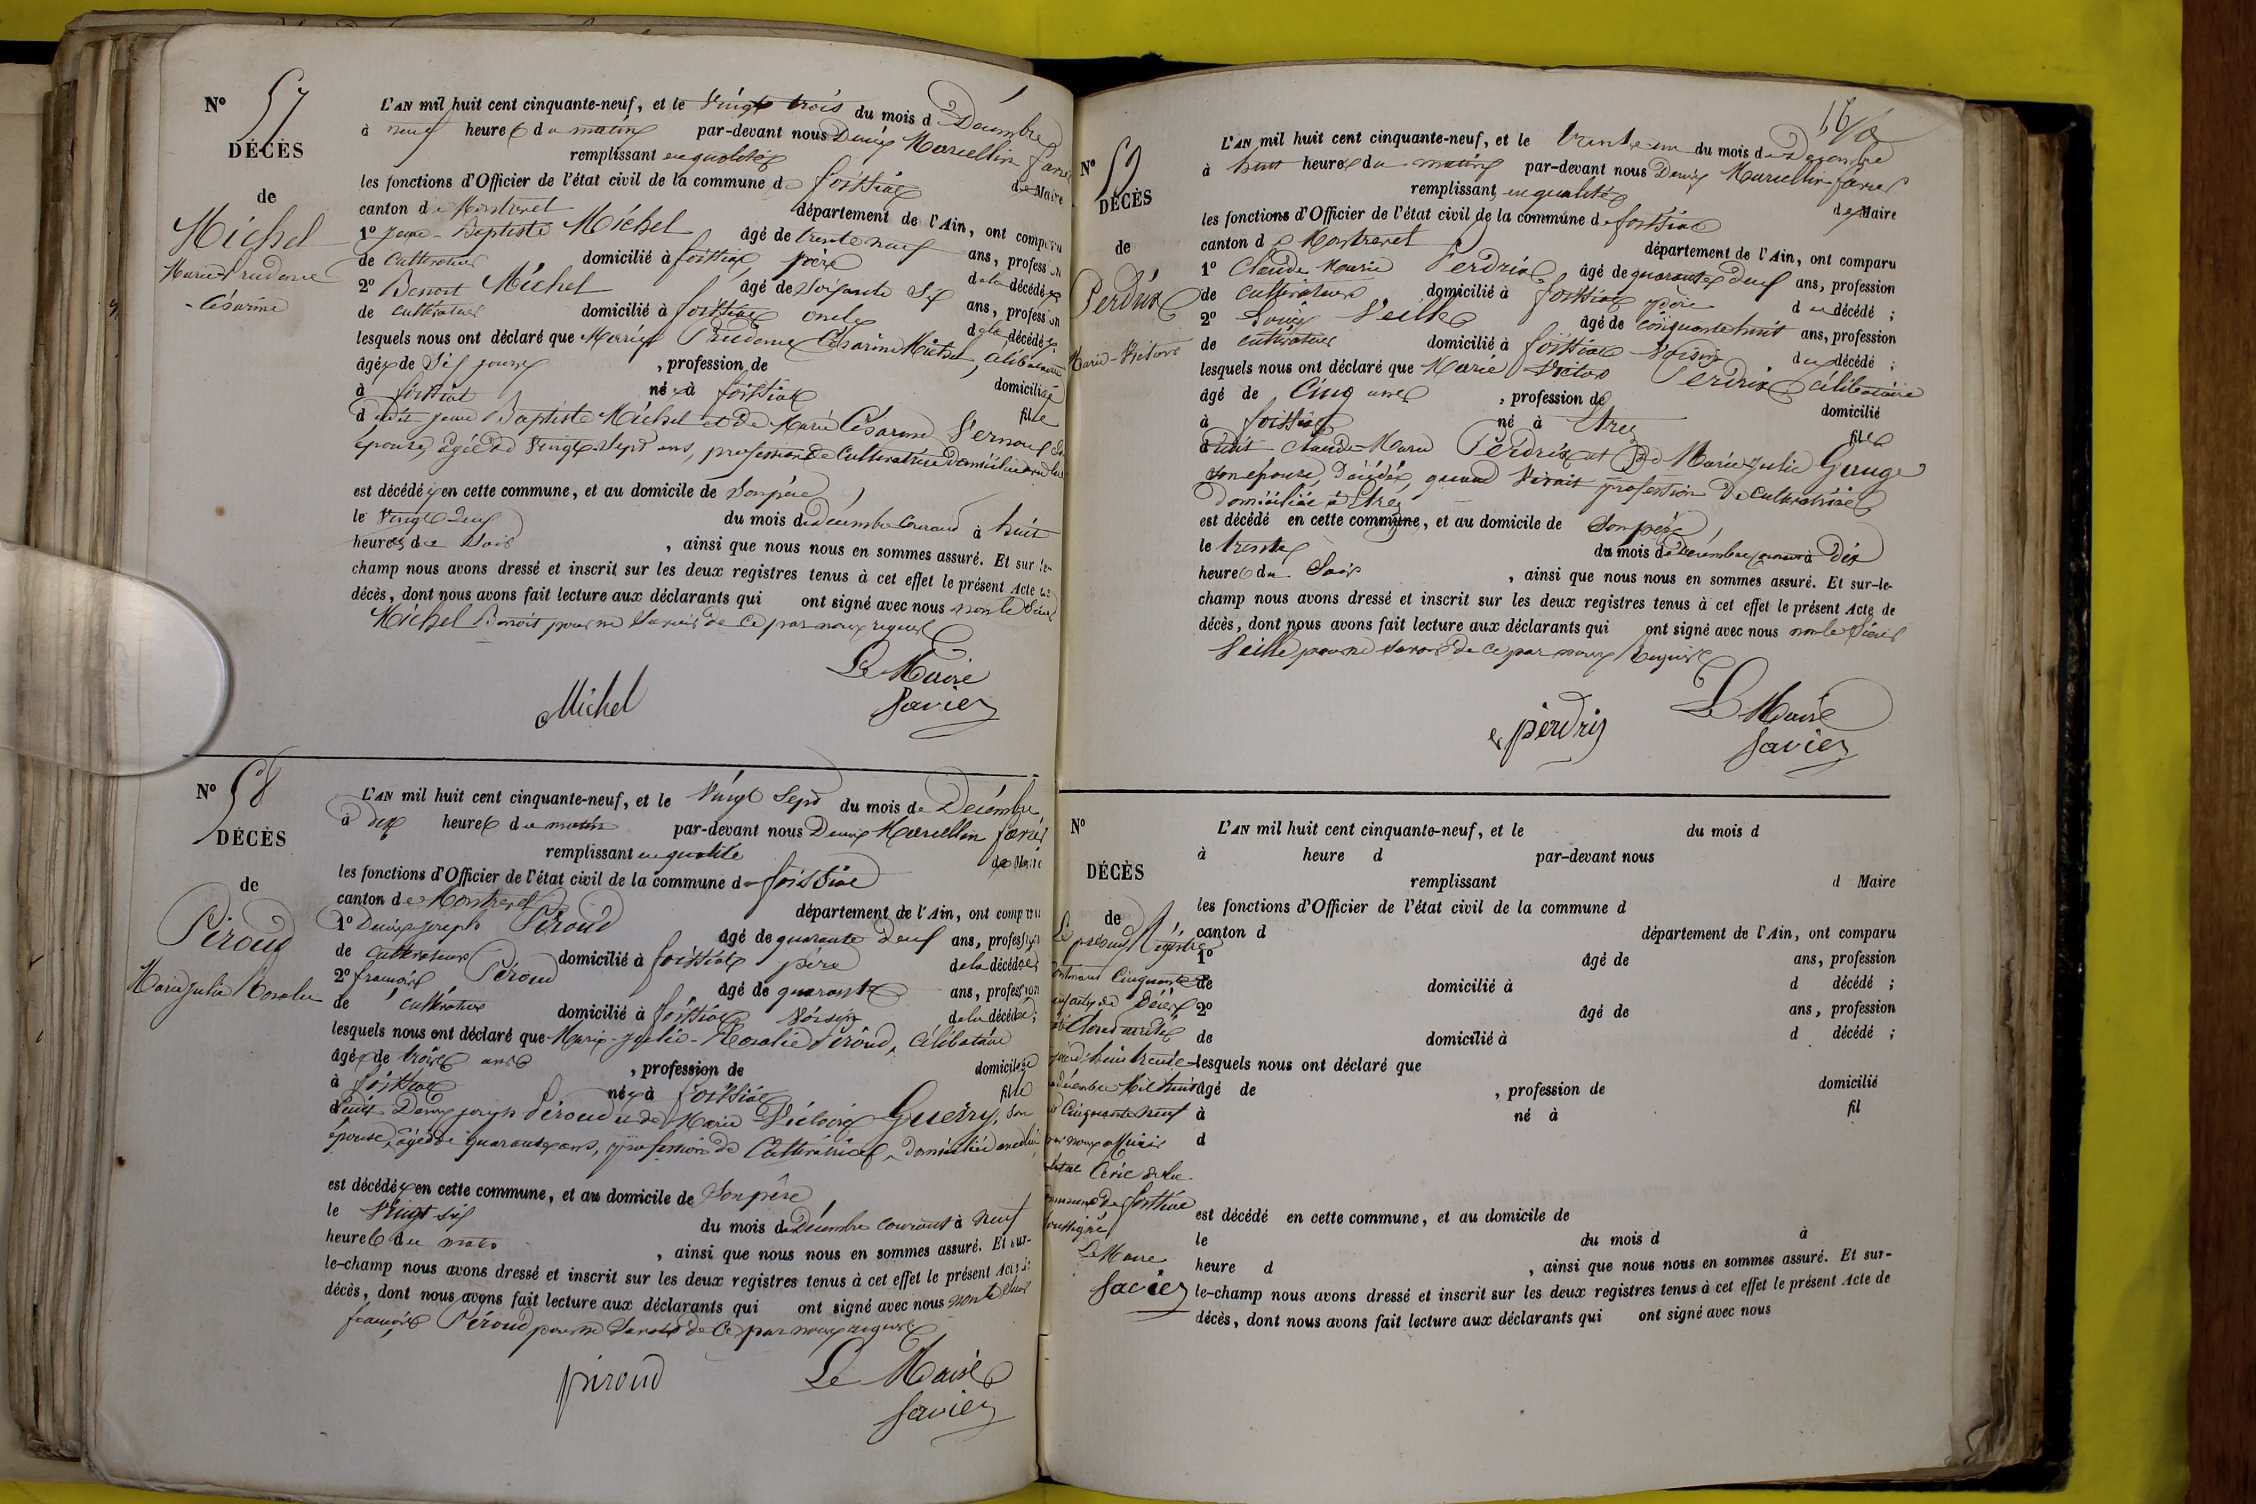 N° 57
DÉCÈS
de
Michel
Marie-Prudence
-Césarine
L'AN mil huit cent cinquante-neuf, et le Vingt trois du mois d Décembre
à neuf heures du matin par-devant nous Denis Marcellin
remplissant en qualité de Maire
les fonctions d'Officier de l'état civil de la commune de foissiat
canton de Montrevel département de l'Ain, ont comparu
1° Jean-Baptiste Michel âgé de trente neuf ans, profession
de cultivateur domicilié à foissiat père de la décédée
2° Benoit Michel âgé de Soixante Six ans, profession
de cultivateur domicilié à foissiat oncle de la décédée
lesquels nous ont déclaré que Marie Prudence Césarine Michel, célibataire
âgée de Six jours , profession de domiciliée
à foissiat née à foissiat fille
dudit Jean Baptiste Michel et de Marie Césarine son
épouse, âgée de Vingt-Sept ans, profession de Cultivatrice domiciliée
est décédée en cette commune, et au domicile de Son père
le Vingt deux du mois de décembre Courant à huit
heures du Soir , ainsi que nous nous en sommes assuré. Et sur-le-
champ nous avons dressé et inscrit sur les deux registres tenus à cet effet le présent Acte de
décès, dont nous avons fait lecture aux déclarants qui ont signé avec nous non le Sieur
Michel Benoit pour ne Savoir de ce par nous requis
Le Maire
Michel
N° 58
DÉCÈS
de
Péroud
Marie Julie Rosalie
L'AN mil huit cent cinquante-neuf, et le Vingt Sept du mois de Décembre
à dix heures du matin par-devant nous Denis Marcellin
remplissant en qualité de Maire
les fonctions d'Officier de l'état civil de la commune de foissiat
canton de Montrevel département de l'Ain, ont comparu
1° Denis Joseph Péroud âgé de quarante Deux ans, profession
de cultivateur domicilié à foissiat père de la décédée
2° françois Péroud âgé de quarante ans, profession
de cultivateur domicilié à foissiat Voisin de la décédée;
lesquels nous ont déclaré que Marie-Julie-Rosalie Péroud, Célibataire
âgée de trois ans , profession de domiciliée
à foissiat née à foissiat fille
dudit Denis Joseph Péroud et de Marie Victoire Guerry, Son
épouse, âgée de quarante ans, profession de Cultivatrice, domiciliée
est décédée en cette commune, et au domicile de Son père
le Vingt six du mois de Décembre courant à neuf
heures du matin , ainsi que nous nous en sommes assuré. Et sur-
le-champ nous avons dressé et inscrit sur les deux registres tenus à cet effet le présent Acte de
décès, dont nous avons fait lecture aux déclarants qui ont signé avec nous non le Sieur
françois Péroud pour ne Savoir de Ce par nous requis
péroud
Le Maire
N° 59
DÉCÈS
de
Perdrix
Marie-Victor
L'AN mil huit cent cinquante-neuf, et le trente un du mois de Décembre
à huit heures du matin par-devant nous Denis Marcellin
remplissant en qualité de Maire
les fonctions d'Officier de l'état civil de la commune de foissiat
canton de Montrevel département de l'Ain, ont comparu
1° Claude Marie Perdrix âgé de quarante deux ans, profession
de cultivateur domicilié à foissiat père du décédé ;
2° Louis Veille âgé de cinquante huit ans, profession
de cultivateur domicilié à foissiat Voisin du décédé ;
lesquels nous ont déclaré que Marie Victor Perdrix célibataire
âgé de Cinq ans , profession de domicilié
à foissiat né à Etrez fils
dudit Claude-Marie Perdrix et de Marie Julie
son épouse, Décédée, quand Vivait profession de cultivatrice
Domiciliée à Etrez
est décédé en cette commune, et au domicile de Son père
le trente du mois de Décembre courant à Dix
heures du Soir , ainsi que nous nous en sommes assuré. Et sur-le-
champ nous avons dressé et inscrit sur les deux registres tenus à cet effet le présent Acte de
décès, dont nous avons fait lecture aux déclarants qui ont signé avec nous non le Sieur
Veille pour ne Savoir de ce par nous Requis
perdrix
Le Maire
N°
DÉCÈS
de
Le présent Registre
contenant Cinquante
neuf actes de Décès
été Clos et arrêté
décembre Mil huit
cent Cinquante neuf
par nous officier
l'état Civil de la
commune de foissiat
soussigné
Le Maire
L'AN mil huit cent cinquante-neuf, et le du mois d
à heure d par-devant nous
remplissant d Maire
les fonctions d'Officier de l'état civil de la commune d
canton d département de l'Ain, ont comparu
1° âgé de ans, profession
de domicilié à d décédé ;
2° âgé de ans, profession
de domicilié à d décédé ;
lesquels nous ont déclaré que
âgé de , profession de domicilié
à né à fil
d
est décédé en cette commune, et au domicile de
le du mois d à
heure d , ainsi que nous nous en sommes assuré. Et sur-
le-champ nous avons dressé et inscrit sur les deux registres tenus à cet effet le présent Acte de
décès, dont nous avons fait lecture aux déclarants qui ont signé avec nous